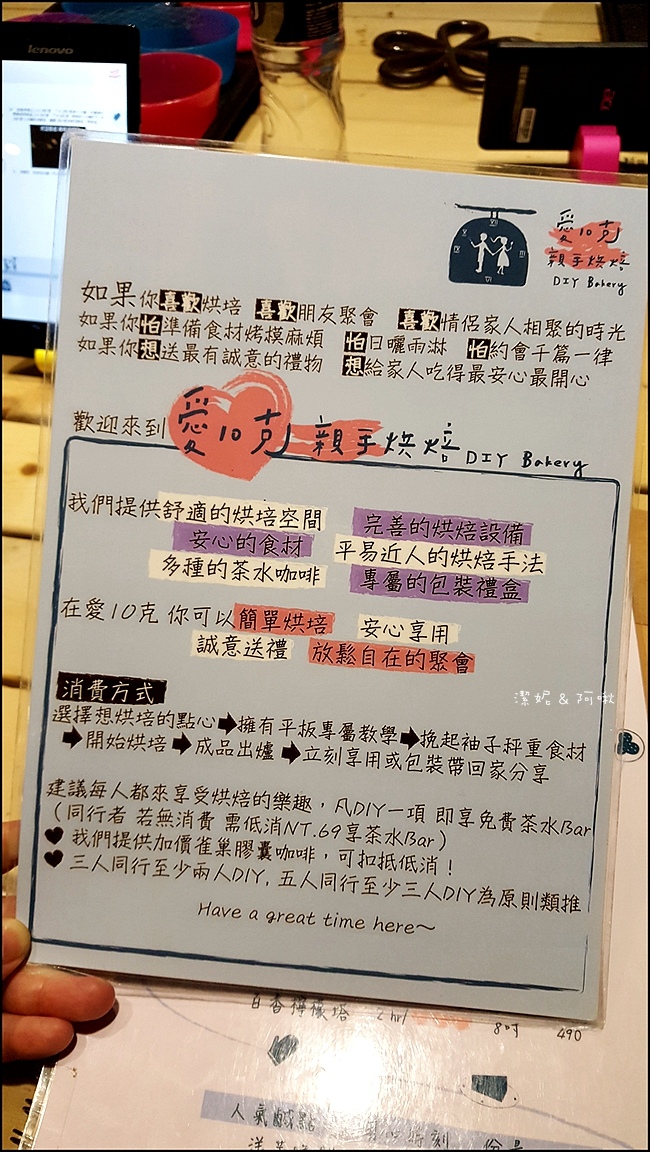 lenovo
acer
愛10克
親手烘焙
DIY Bakery
如果你喜歡烘培 喜歡朋友聚會 喜歡情侶家人相聚的時光
如果你怕準備食材烤模麻煩 怕日曬雨淋 怕約會千篇一律
如果你想送最有誠意的禮物 想給家人吃得最安心最開心
歡迎來到愛10克 親手烘焙 DIY Bakery
我們提供舒適的烘培空間 完善的烘焙設備
安心的食材 平易近人的烘焙手法
多種的茶水咖啡 專屬的包裝禮盒
在愛10克 你可以簡單烘培 安心享用
誠意送禮 放鬆自在的聚會
消費方式
選擇想烘培的點心➡擁有平板專屬教學➡挽起袖子秤重食材
➡開始烘培➡成品出爐➡立刻享用或包裝帶回家分享
潔妮 & 阿啾
建議每人都來享受烘焙的樂趣，凡DIY一項 即享免費茶水Bar
(同行者 若無消費 需低消NT.69享茶水Bar)
♥ 我們提供加價雀巢膠囊咖啡，可扣抵低消！
♥ 三人同行至少兩人DIY, 五人同行至少三人DIY為原則類推
Have a great time here~
百香檸檬塔 2 hr/ 8吋 490
人氣鹹點